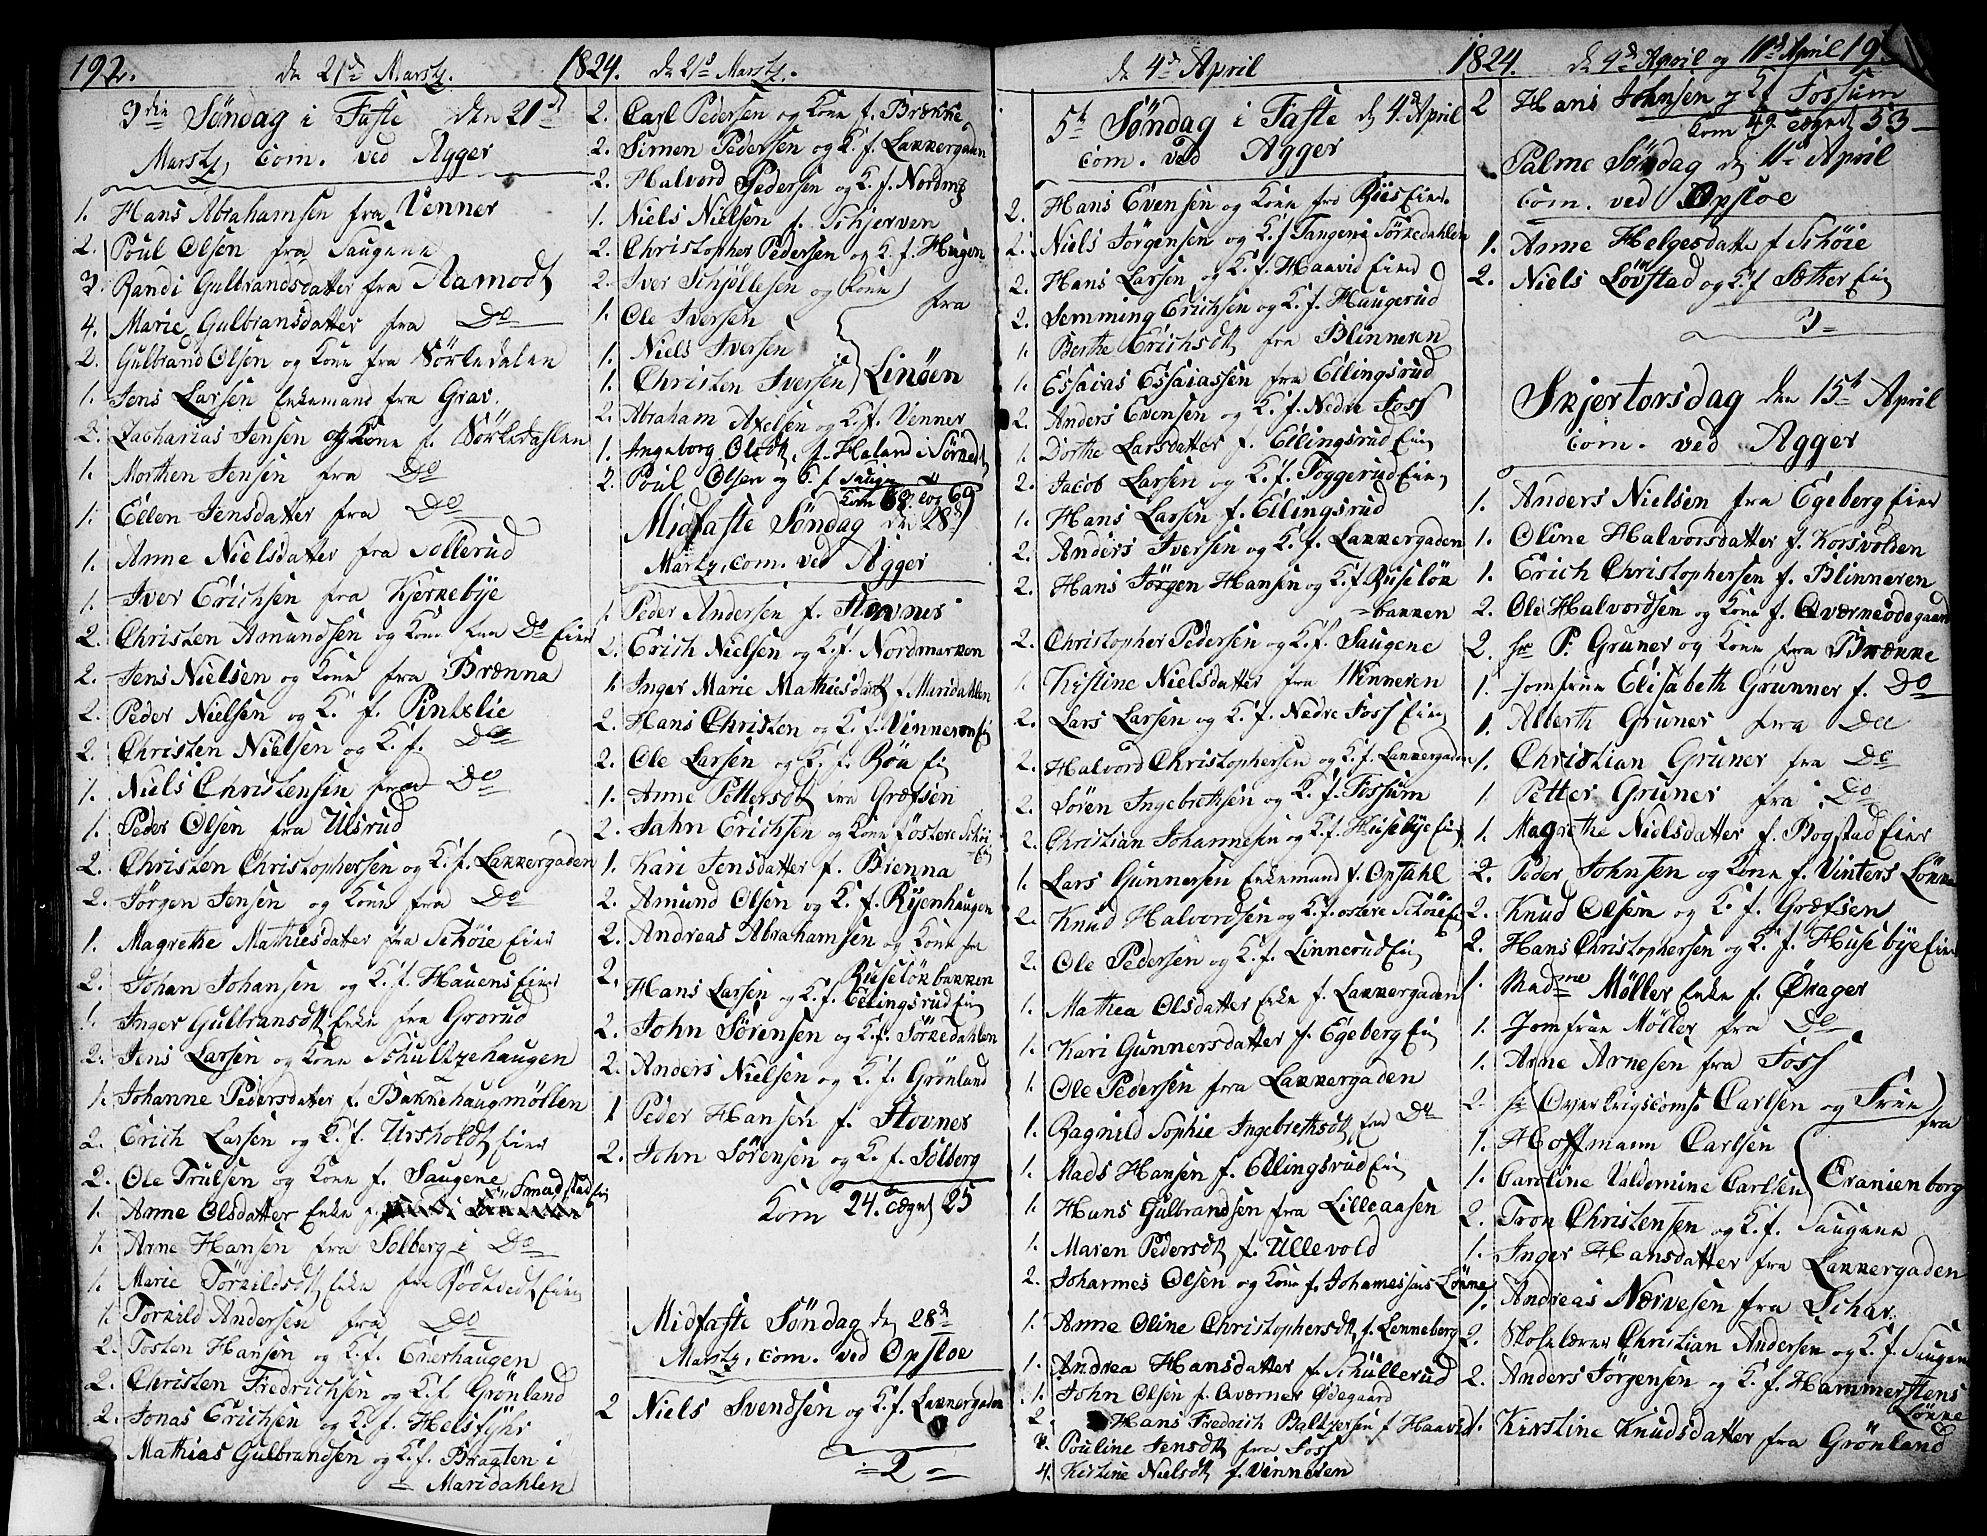 192. de 21de Martz. 1824. de 21de Martz.
3die Søndag i Faste den 21de
Martz, Com. ved Agger
1. Hans Abrahamsen fra Venner
2. Poul Olsen fra Saugene
3. Randi Gulbrandsdatter fra Aamodt
4. Marie Gulbransdatter fra Do
2. Gulbrand Olsen og Kone fra Sørkedalen
1. Jens Larsen Enkemand fra Grav.
2. Zacharias Jensen og Kone f. Sørkedahlen
1. Morthen Jensen fra Do
1. Ellen Jensdatter fra Do
1. Anne Nielsdatter fra Sollerud
1. Iver Erichsen fra Kjerkebye
2. Christen Amundsen og Kone fra Do Eier
2. Jens Nielsen og Kone fra Brænna
2. Peder Nielsen og K. f. Pintslie
2. Christen Nielsen og K. f. Do
1. Niels Christensen fra Do
1. Peder Olsen fra Ulsrud
2. Christen Christophersen og K. f. Lakkergaden
2. Jørgen Jensen og Kone fra Do
1. Magrethe Mathiesdatter fra Schøie Eier
2. Johan Johansen og K. f. Hauens Eier
1. Inger Gulbransdt Enke fra Grorud
2. Jens Larsen og Kone Schultzehaugen
1. Johanne Pedersdatter f. Bakkehaugmøllen
2. Erich Larsen og K. f. Ursholdt Eier
2. Ole Trulsen og Kone f. Saugene
1. Anne Olsdatter Enke f. Smedstad Ei
1. Arne Hansen fra Solberg i Do
1. Marie Torkildsdt Enke fra Rødtvedt Eie
1. Torkild Andersen fra Do
2. Tosten Hansen og K. f. Enerhaugen
2. Christen Fredrichsen og K. f. Grønland
2. Jonas Erichsen og K. f. Helsfyhr
Mathias Gulbrandsen og K. f. Bragten i
Maridahlen
2. Carl Pedersen og Kone f. Brække
2. Simen Pedersen og K. f. Lakkergaden
2. Halvord Pedersen og K. f. Nordmg
1. Niels Nielsen f. Schjerven
2. Christopher Pedersen og K. f. Haugen
2. Iver Schjøllesen og Kone fra
1. Ole Iversen
1. Niels Iversen
1. Christen Iversen Lindøen
2. Abraham Axelsen og K. f. Venner
1. Ingeborg Olsdt. f. Haland i Sørkedl
2. Poul Olsen og K. f. Sauge
Com 68. cog 69
Midfaste Søndag den 28de
Martz, com. ved Agger
1. Peder Andersen f. Stovner
2. Erich Nielsen og K. f. Nordmarken
1. Inger Marie Mathiesdatt f. Meridahlen
2. Hans Christen og K. f. Vinneren Ei
2. Ole Larsen og K. f. Røa Ei
1. Anne Pettersdt fra Græfsen
2. Jahn Erichsen og Kone f. østere Schøi
Ei
1. Kari Jensdatter f. Brenna
2. Amund Olsen og K. f. Ryenhaugen
2. Andreas Abrahamsen og Kone fra
Ruseløkbakken
2. Hans Larsen og K. f. Ellingsrud Ei
2. John Sørensen og K. f. Sørkedahlen
2. Anders Nielsen og K. f. Grønland
1 Peder Hansen f. Stovner
2. John Sørensen og K. f. Solberg
Kom 24. cægnt 25
Midfaste Søndag de 28de
Martz, com. ved Opsloe
2 Niels Svendsen og K. f. Lakkergaden
= 2 =
de 4de April 1824. de 4de April og 11de April 19
5te Søndag i Faste de 4de April
com. ved Agger
2. Hans Evensen og Kone fra Riis Eier.
2. Niels Jørgensen og K. f. Tangen i Sørkedahlen
2. Hans Larsen og K. f. Haavid Eier
2. Semming Erichsen og K. f. Haugerud
1. Berthe Erichsdt fra Blinneren
1. Essaias Essaiassen fra Ellingsrud
2. Anders Evensen og K. f. Nedre Foss
1. Dorthe Larsdatter f. Ellingsrud Ei
2. Jacob Larsen og K. f. Foggerud Eier
1. Hans Larsen f. Ellingsrud
2. Anders Iversen og K. f. Lakkergaden
2. Hans Jørgen Hansen og K. f. Ruseløk
=bakken
2. Christopher Pedersen og K. f. Saugene
1. Kistine Nielsdatter fra Winneren
2. Lars Larsen og K. f. Nedre Foss Eier
2. Halvord Christophersen og K. f. Lakkergaden
2. Søren Ingebrethsen og K. f. Fossum
2. Christian Johannesen og K. f. Husebye Ei
1. Lars Gunnersen Enkemand f. Opsahl
2. Knud Halvordsen og K. f. østere Schøie Ei
2. Ole Pedersen og K. f. Linnerud Ei
1. Mathea Olsdatter Enke f. Lakkergaden
1. Kari Gunnersdatter f. Egeberg Ei
1. Ole Pedersen fra Lakkergaden
1. Ragnild Sophie Ingebrethsdt fra Do
1. Mads Hansen f. Ellingsrud Ei
1. Hans Gulbrandsen fra Lilleaasen
1. Maren Pedersdt f. Ullevold
2. Johannes Olsen og Kone f. Johannessens Løkke
1. Anne Oline Christophersdt f. Lenneberg
1. Andrea Hansdatter f. Schullerud
1. John Olsen f. Qværner Ødegaard
2. Hans Fredrich Baltzersen f Haavid
3. Pouline Jensdt fra Foss
4. Kistine Nielsdt f. Vinneren
2 Hans Johnsen og K. f Fossum
Com 49. cægnet 53
Palme Søndag de 11te April
Com. ved Opsloe
1. Anne Helgesdatte f Schøie
2. Niels Løvstad og K. f Sæther Eie
3=
Skjertorsdag den 15te April
com. ved Agger
1. Anders Nielsen fra Egeberg Eier
1. Oline Halvorsdatter f. Korsvolden
1. Erich Christophersen f. Blinneren
2. Ole Halvordsen og Kone f. Qværneødegaard
2. hr P. Gruner og Kone fra Brække
1. Jomfrue Elisabeth Grunner f. Do
1. Alberth Gruner fra Do
1. Christian Gruner fra Do
1. Petter Gruner fra Do
1. Magrethe Nielsdatter f. Bogstad Eier
2. Peder Johnsen og Kone f. Vinters Løkke
2. Knud Olsen og K. f. Græfsen
2. Hans Christophersen og K. f. Husebye Eier
1. Madme Møller Enke f. Østager
1. Jomfrue Møller fra Do
1. Arne Arnesen fra Foss
2. hr Overkrigscoms Carlsen og Frue
fra
1. Hoffmann Carlsen
1. Caroline Valdemine Carlsen Oranienborg
2. Tron Christensen og K. f. Saugene
1. Inger Hansdatter fra Lakkergaden
1. Andreas Nærvesen fra Schar.
2. Skolelærer Christian Andersen og K. f. Saugene
2. Anders Jørgensen og K. f. Hammerstens
Løkke
1. Kirstine Knudsdatter fra Grønland